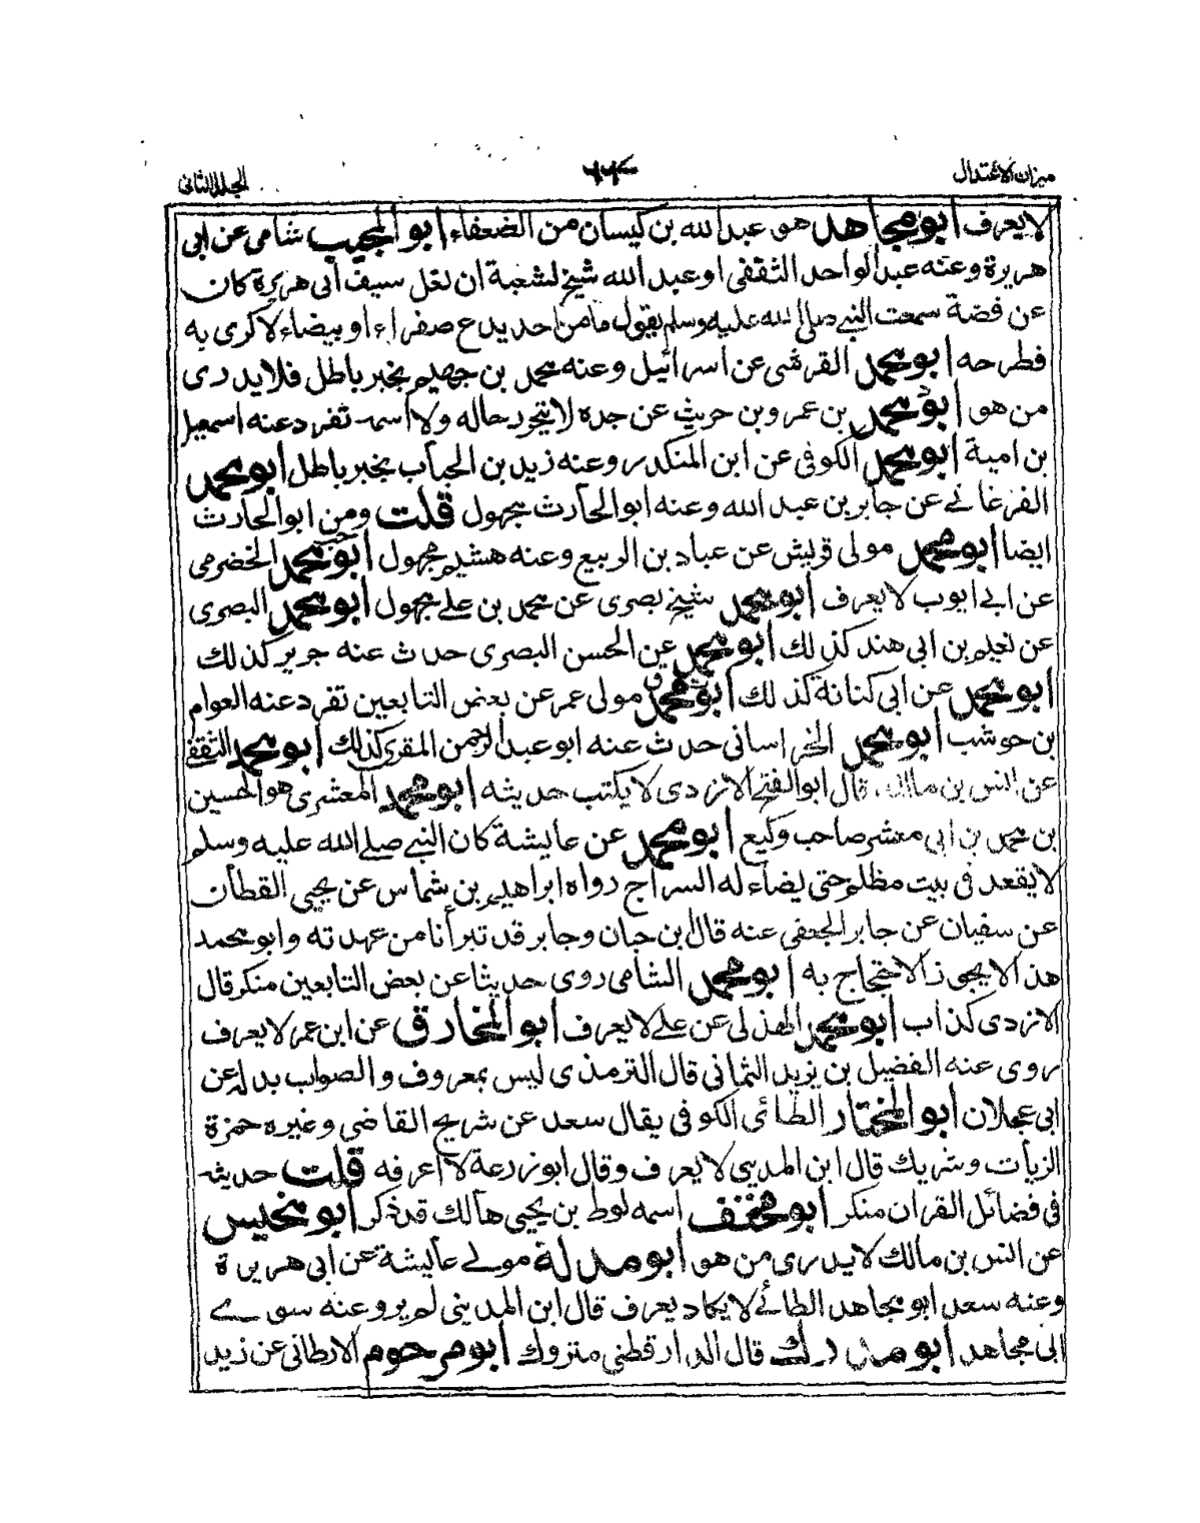 ميزان الاعتدال
المجلد الثانى
لا يعرف ابو مجاهد هو عبد الله بن كيسان من الضعفاء ابو المجيب شامى عن ابى
هريرة وعنه عبد الواحد الثقفى او عبد الله شيخ لشعبة ان نعل سيف ابى هريرة كان
عن فضة سمعت النبى صلى الله عليه وسلم يقول ما من احد يدع صفراء او بيضاء الا كوى به
فطرحه ابو محمد القرشى عن اسرائيل وعنه محمد بن جهيم بخبر باطل فلا يدرى
من هو ابو محمد بن عمرو بن حريث عن جده لا يتجود حاله ولا اسمه تفرد عنه اسمعيل
بن امية ابو محمد الكوفى عن ابن المنكدر وعنه زيد بن الحباب بخبر باطل ابو محمد
الفرغانے عن جابر بن عبد الله وعنه ابو الحارث مجهول قلت ومن ابو الحارث
ايضا ابو محمد مولى قريش عن عباد بن الربيع وعنه هشيم مجهول ابو محمد الخضرمى
عن ابے ايوب لا يعرف ابو محمد شيخ بصرى عن محمد بن علے مجهول ابو محمد البصرى
عن نعيم بن ابى هند كذلك ابو محمد عن الحسن البصرى حدث عنه جرير كذلك
ابو محمد عن ابى كنانة كذلك ابو محمد مولى عمر عن بعض التابعين تفرد عنه العوام
بن حوشب ابو محمد الخراسانى حدث عنه ابو عبد الرحمن المقرى كذلك ابو محمد الثقفى
عن انس بن مالك قال ابو الفتح الازدى لا يكتب حديثه ابو محمد المعشرى هو الحسين
بن محمد بن ابى معشر صاحب وكيع ابو محمد عن عايشة كان النبے صلے الله عليه وسلم
لا يقعد فى بيت مظلم حتى يضاء له السراج رواه ابراهيم بن شماس عن يحيى القطان
عن سفيان عن جابر الجعفى عنه قال ابن حبان وجابر قد تبرأنا من عهدته وابو محمد
هذا لا يجوز الاحتجاج به ابو محمد الشامى روى حديثا عن بعض التابعين منكر قال
الازدى كذاب ابو محمد الهذلى عن علے لا يعرف ابو المخارق عن ابن عمر لا يعرف
روى عنه الفضيل بن يزيد الثمانى قال الترمذى ليس بمعروف والصواب بدله عن
ابى عجلان ابو المختار الطائى الكوفى يقال سعد عن شريح القاضى وغيره حمزة
الزيات وشريك قال ابن المدينى لا يعرف وقال ابو زرعة لا اعرفه قلت حديثه
فى فضائل القران منكر ابو مخنف اسمه لوط بن يحيى هالك قد ذكر ابو مخيس
عن انس بن مالك لا يدرى من هو ابو مدلة مولے عايشة عن ابى هريرة
وعنه سعد ابو مجاهد الطائے لا يكاد يعرف قال ابن المدينى لم يرو عنه سوے
ابى مجاهد ابو مدرك قال الدارقطنى متروك ابو مرحوم الارطانى عن زيد